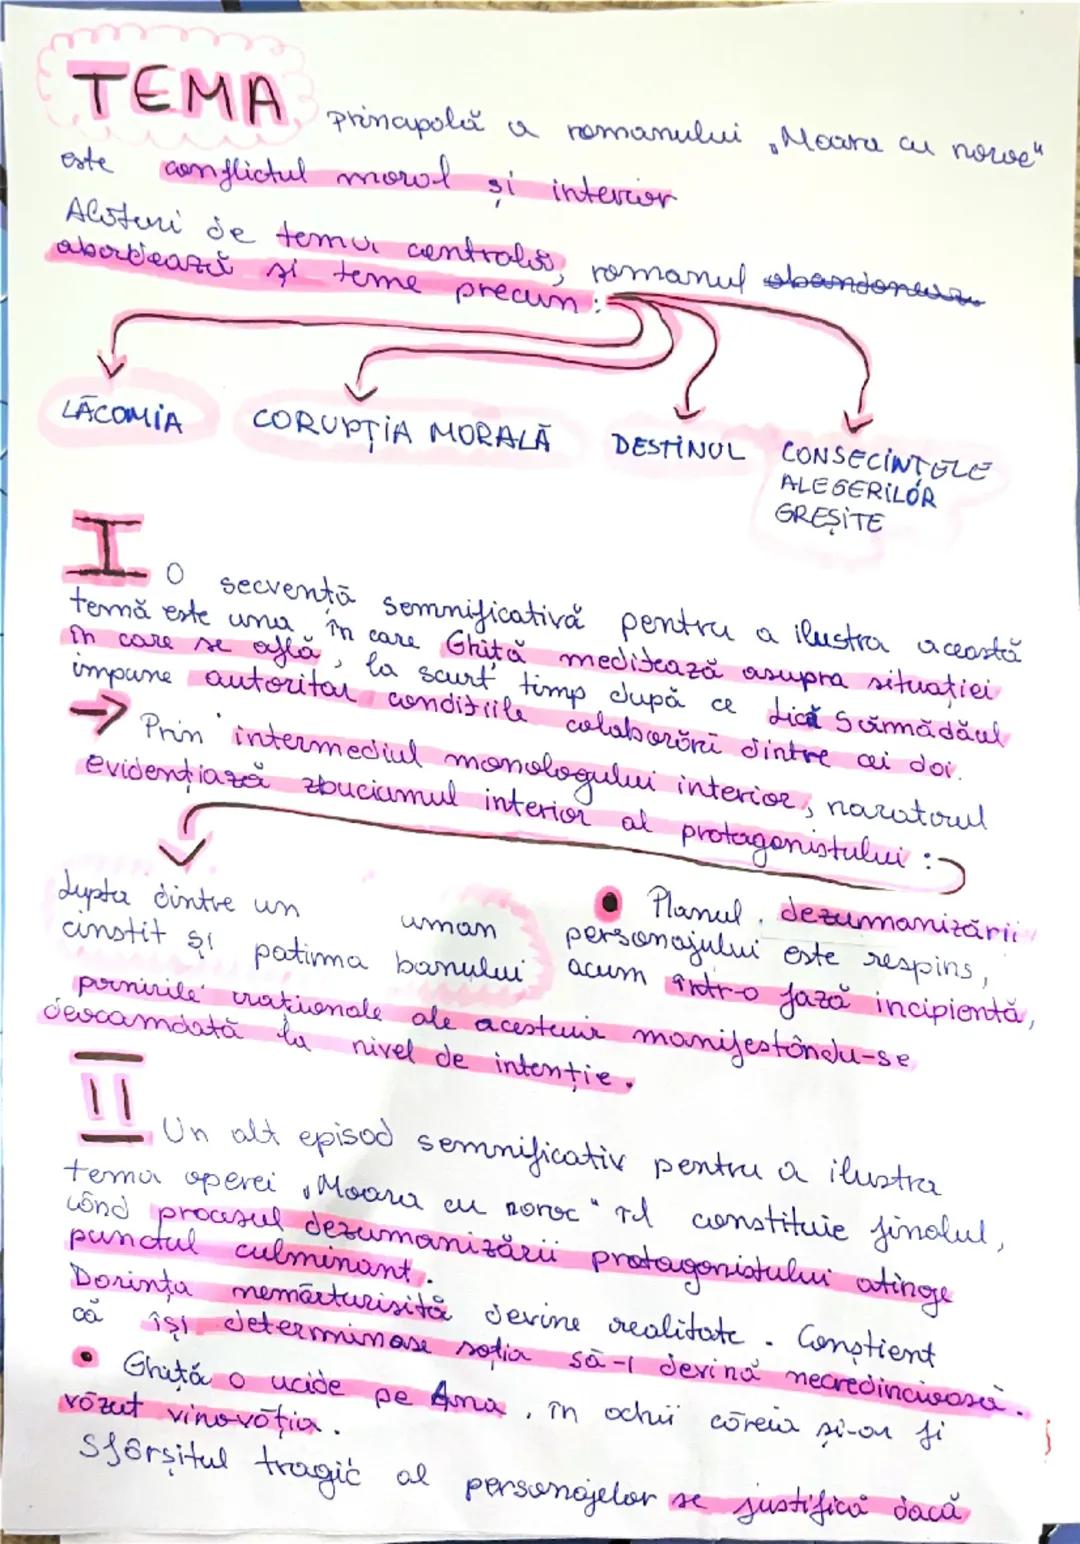 TEMA principală a romanului „Moara cu noroc"
este conflictul moral și interior
Alături de tema centrală, romanul abandonează
abordează și teme precum:
LĂCOMIA
CORUPȚIA MORALĂ
DESTINUL
CONSECINȚELE
ALEGERILOR
GREȘITE
I O secvență semnificativă pentru a ilustra această
temă este una în care Ghiță meditează asupra situației
în care se află, la scurt timp după ce Lică Sămădăul
impune autoritar condițiile colaborării dintre cei doi.
→ Prin intermediul monologului interior, naratorul
evidențiază zbuciumul interior al protagonistului:
lupta dintre un uman
cinstit și patima banului
• Planul dezumanizării
personajului este respins,
acum într-o fază incipientă,
pornirile iraționale ale acestuia manifestându-se
deocamdată la nivel de intenție.
II Un alt episod semnificativ pentru a ilustra
tema operei „Moara cu noroc" îl constituie finalul,
când procesul dezumanizării protagonistului atinge
punctul culminant.
Dorința nemărturisită devine realitate. Conștient
că își determinase soția să-i devină necredincioasă.
• Ghiță o ucide pe Ana, în ochii căreia și-ar fi
văzut vinovăția.
Sfârșitul tragic al personajelor se justifică dacă